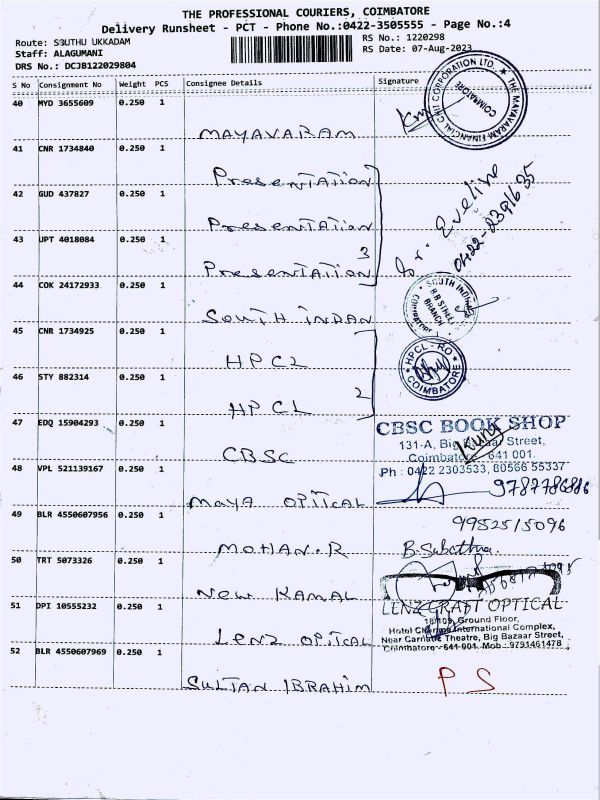 THE PROFESSIONAL COURIERS, COIMBATORE
Delivery Runsheet - PCT - Phone No.:0422-3505555 - Page No.:4
Route: SOUTHU UKKADAM
RS No.: 1220298
Staff: ALAGUMANI
RS Date: 07-Aug-2023
DRS No.: DCJB122029804
S No Consignment No Weight PCS Consignee Details Signature
40 MYD 3655609 0.250 1
MAYAVARAM
THE MAYAVARAM FINANCIAL CHIT CORPORATION LTD. COIMBATORE
41 CNR 1734840 0.250 1
Presentation
42 GUD 437827 0.250 1
Presentation
43 UPT 4018084 0.250 1
Presentation 3
Sr. Eveline
0422-2391635
44 COK 24172933 0.250 1
South Indan
SOUTH INDIAN B.B STREET BRANCH
45 CNR 1734925 0.250 1
HPCL
46 STY 882314 0.250 1
HPCL 2
HPCL - RO COIMBATORE
47 EDQ 15904293 0.250 1
CBSC
CBSC BOOK SHOP
131-A, Big Bazaar Street,
Coimbatore 641 001.
Ph : 0422 2303533, 80566 55337
48 VPL 521139167 0.250 1
Maya optical
9787786816
49 BLR 4550607956 0.250 1
Mohan.R
9952515096
B. Subathra
50 TRT 5073326 0.250 1
New Kamal
51 DPI 10555232 0.250 1
Lenz optical
LENZ CRAFT OPTICAL
18/109, Ground Floor,
Hotel International Complex,
Near Carnatic Theatre, Big Bazaar Street,
Coimbatore - 641 001. Mob : 9791461478
52 BLR 4550607969 0.250 1
Sultan Ibrahim
P S